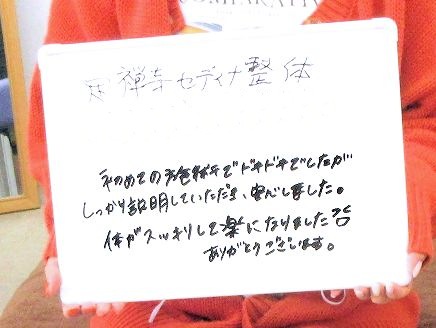 COMPARATIV
禅寺セディナ整体
初めての施術でドキドキでしたが
しっかり説明していただき、安心しました。
体がスッキリして楽になりました
ありがとうございます。